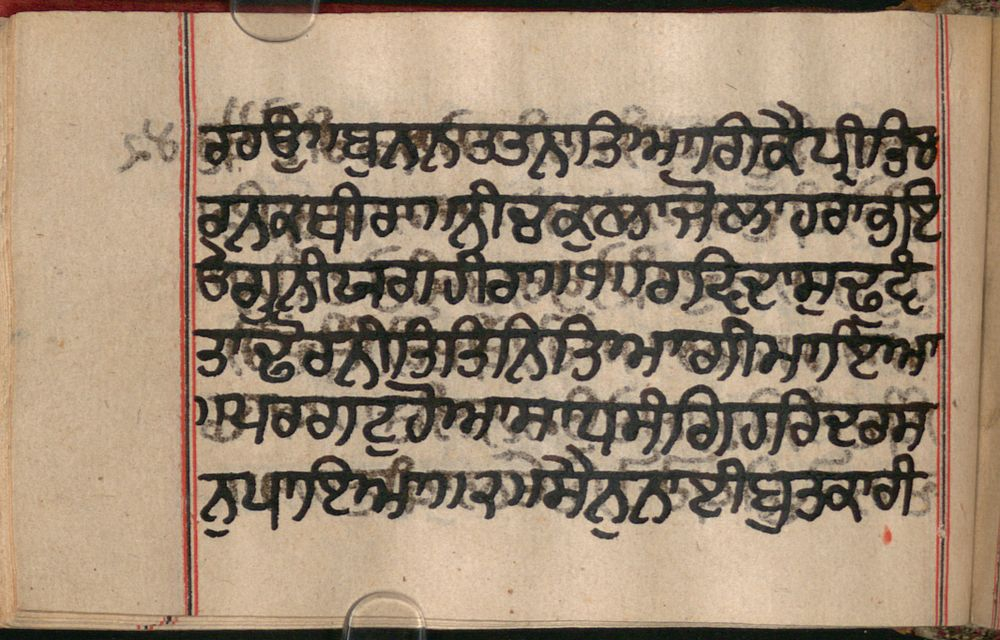 ਰਹਉ॥ ਬੁਨਨ ਤਨਨਾ ਤਿਆਗਿ ਕੈ ਪ੍ਰੀਤਿ ਚ
ਰਨ ਕਬੀਰਾ॥ ਨੀਚ ਕੁਲਾ ਜੋਲਾਹਰਾ ਭਇ
ਓ ਗੁਨੀਯ ਗਹੀਰਾ॥੧॥ ਰਵਿਦਾਸੁ ਢੁਵੰ
ਤਾ ਢੋਰ ਨੀਤਿ ਤਿਨਿ ਤਿਆਗੀ ਮਾਇਆ
॥ ਪਰਗਟੁ ਹੋਆ ਸਾਧ ਸੰਗਿ ਹਰਿ ਦਰਸ
ਨੁ ਪਾਇਆ॥੨॥ ਸੈਨੁ ਨਾਈ ਬੁਤਕਾਰੀ